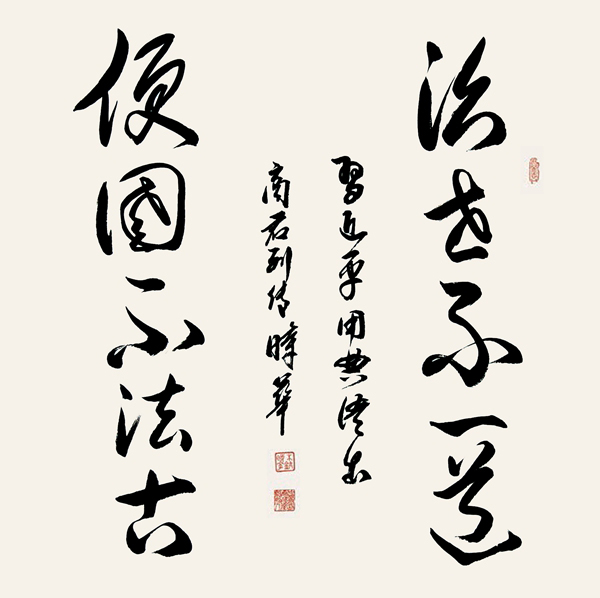 治世不一道
習近平用典語出
商君列傳 華
便國不法古